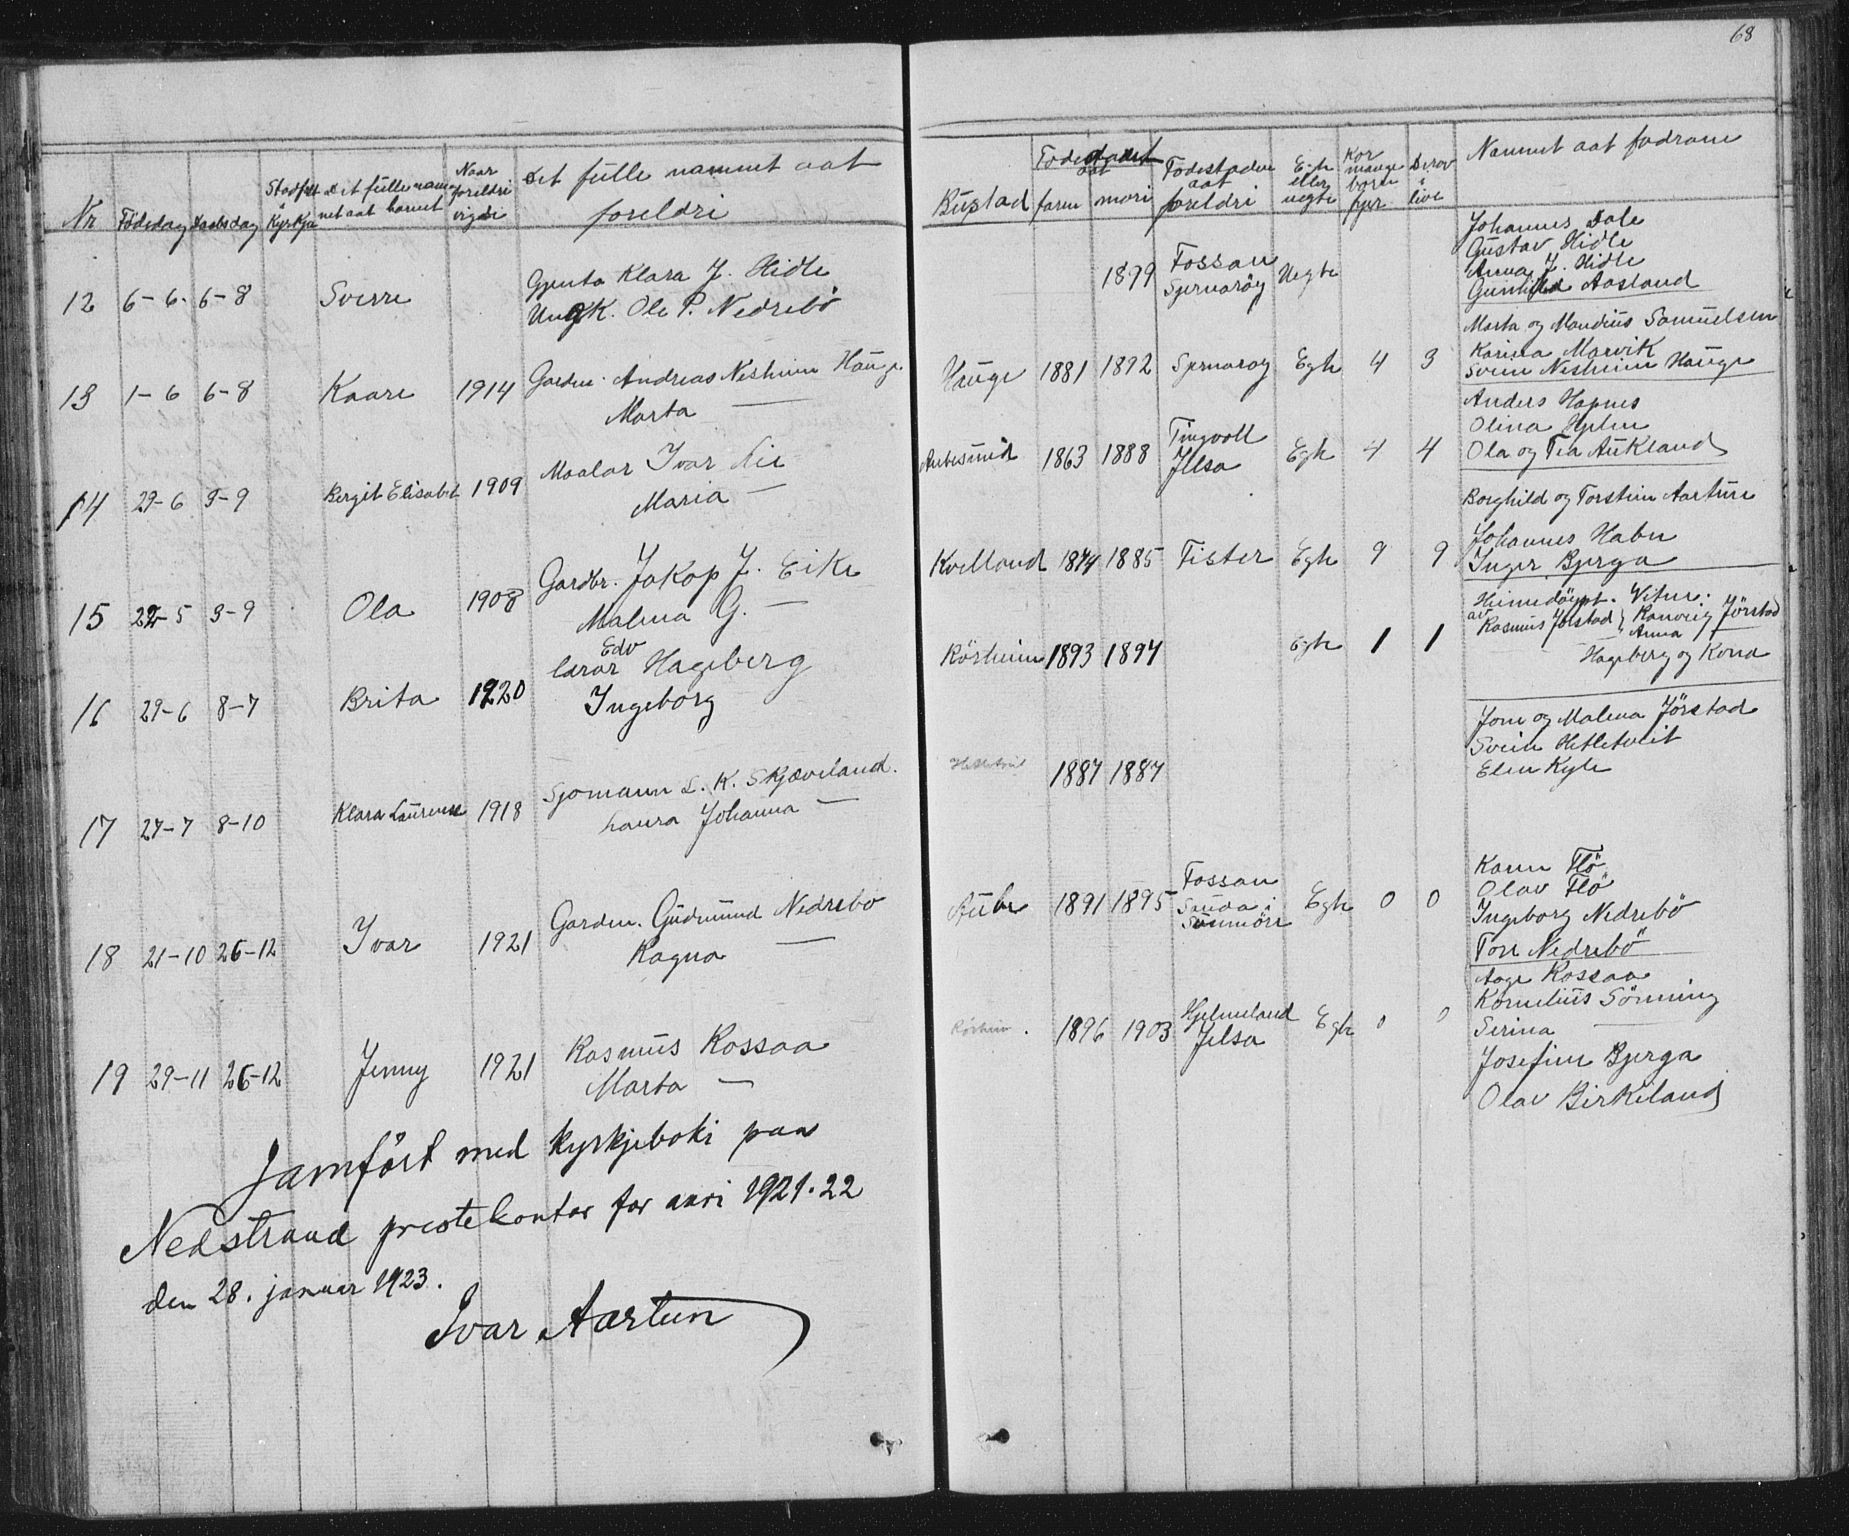 68
Nr
Födsdag
Daabsdag
Stadfest
i
Kyrkja
Det fulle nam-
net aat barnet
Naar
foreldri
vigdi
Det fulle namnet aat
foreldri
Bustad
Födeaaret
aat
faren
mori
Födestaden
aat
foreldri
Egte
eller
uegte
Kor
mange
born
fyrr
Derav
i
live
Namnet aat fadrane
12 6-6. 6-8 Sverre
Gjenta Klara J. Hidle
Ungk. Ole P. Nedrebö
1899
Fossan
Sjernaröy
Uegte
Johannes Dale
Gustav Hidle
Anna J. Hidle
Gunhild Aasland
13 1-6 6-8 Kaare 1914
Gardm. Andreas Nesheim Hauge
Marta —
Hauge 1881 1892 Sjernaroy Egte 4 3
Marta og Mandius Samuelsen
Karina Marvik
Svein Nesheim Hauge
14 29-6 3-9 Bergit Elisabet 1909
Maalar Ivar Lie
Maria —
1863 1888
Tingvoll
Jelsa
Egte 4 4
Anders Hapnes
Olina Hjelm
Ola og Tea Aukland
15 22-5 3-9 Ola 1908
Gardbr. Jakop J. Eike
Malena G. —
Kvelland 1874 1885 Fister Egte 9 9
Borghild og Torstein Aartun
Johannes Habn
Inger Bjerga
16 29-6 8-7 Brita 1920
Edv
Lærar Hageberg
Ingeborg
Rörheim 1893 1897 Egte 1 1
Heimedöypt. Vitne:
av
Rasmus Jörstad } Ranveig Jörstad
— Anna —
Hageberg og Kona
17 27-7 8-10 Klara Laurense 1918
Sjomann L. K. Skjæveland.
Laura Johanna —
1887 1887
Jone og Malena Jörstad
Svein Hetletveit
Elen Kyle
18 21-10 26-12 Ivar 1921
Gardm. Gudmund Nedrebo
Ragna —
Aubo 1891 1895
Fossan
Sanda i
Sunnmöre
Egte 0 0
Karen Flö
Olav Flö
Ingeborg Nedrebö
Tore Nedrebö
19 29-11 26-12 Jenny 1921
Rasmus Rossaa
Marta —
Rörheim. 1896 1903
Hjelmeland
Jelsa
Egte 0 0
Aage Rossaa
Kornelius Sönning
Serina —
Josefine Bjerga
Olav Birkeland
Jamfört med kyrkjeboki paa
Nedstrand prestekontor for aari 1921.22
den 28. januar 1923.
Ivar Aartun